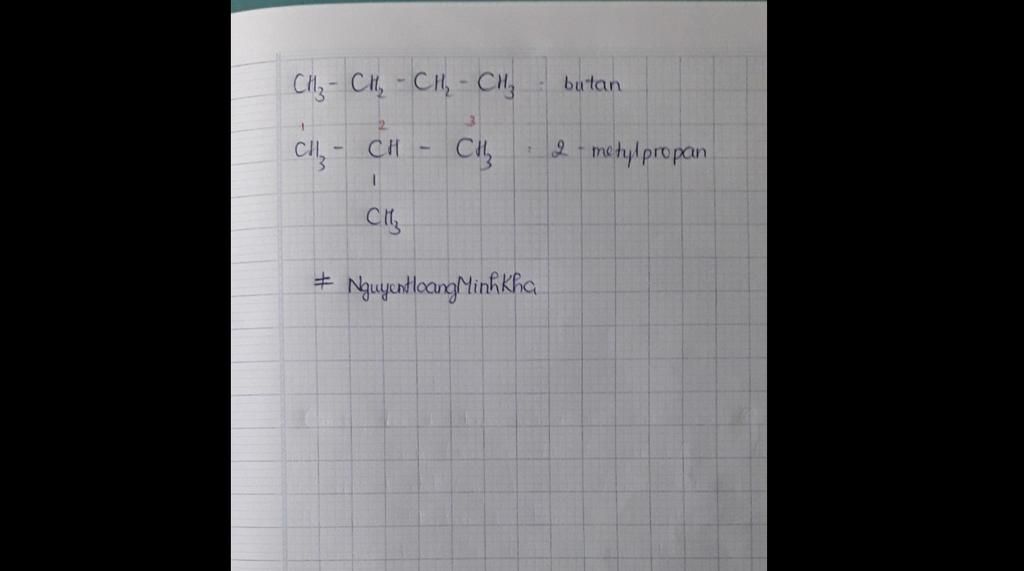 CH₃ - CH₂ - CH₂ - CH₃ : butan
1 2 3
CH₃ - CH - CH₃ : 2 - metylpropan
|
CH₃
# NguyenHoangMinhKha